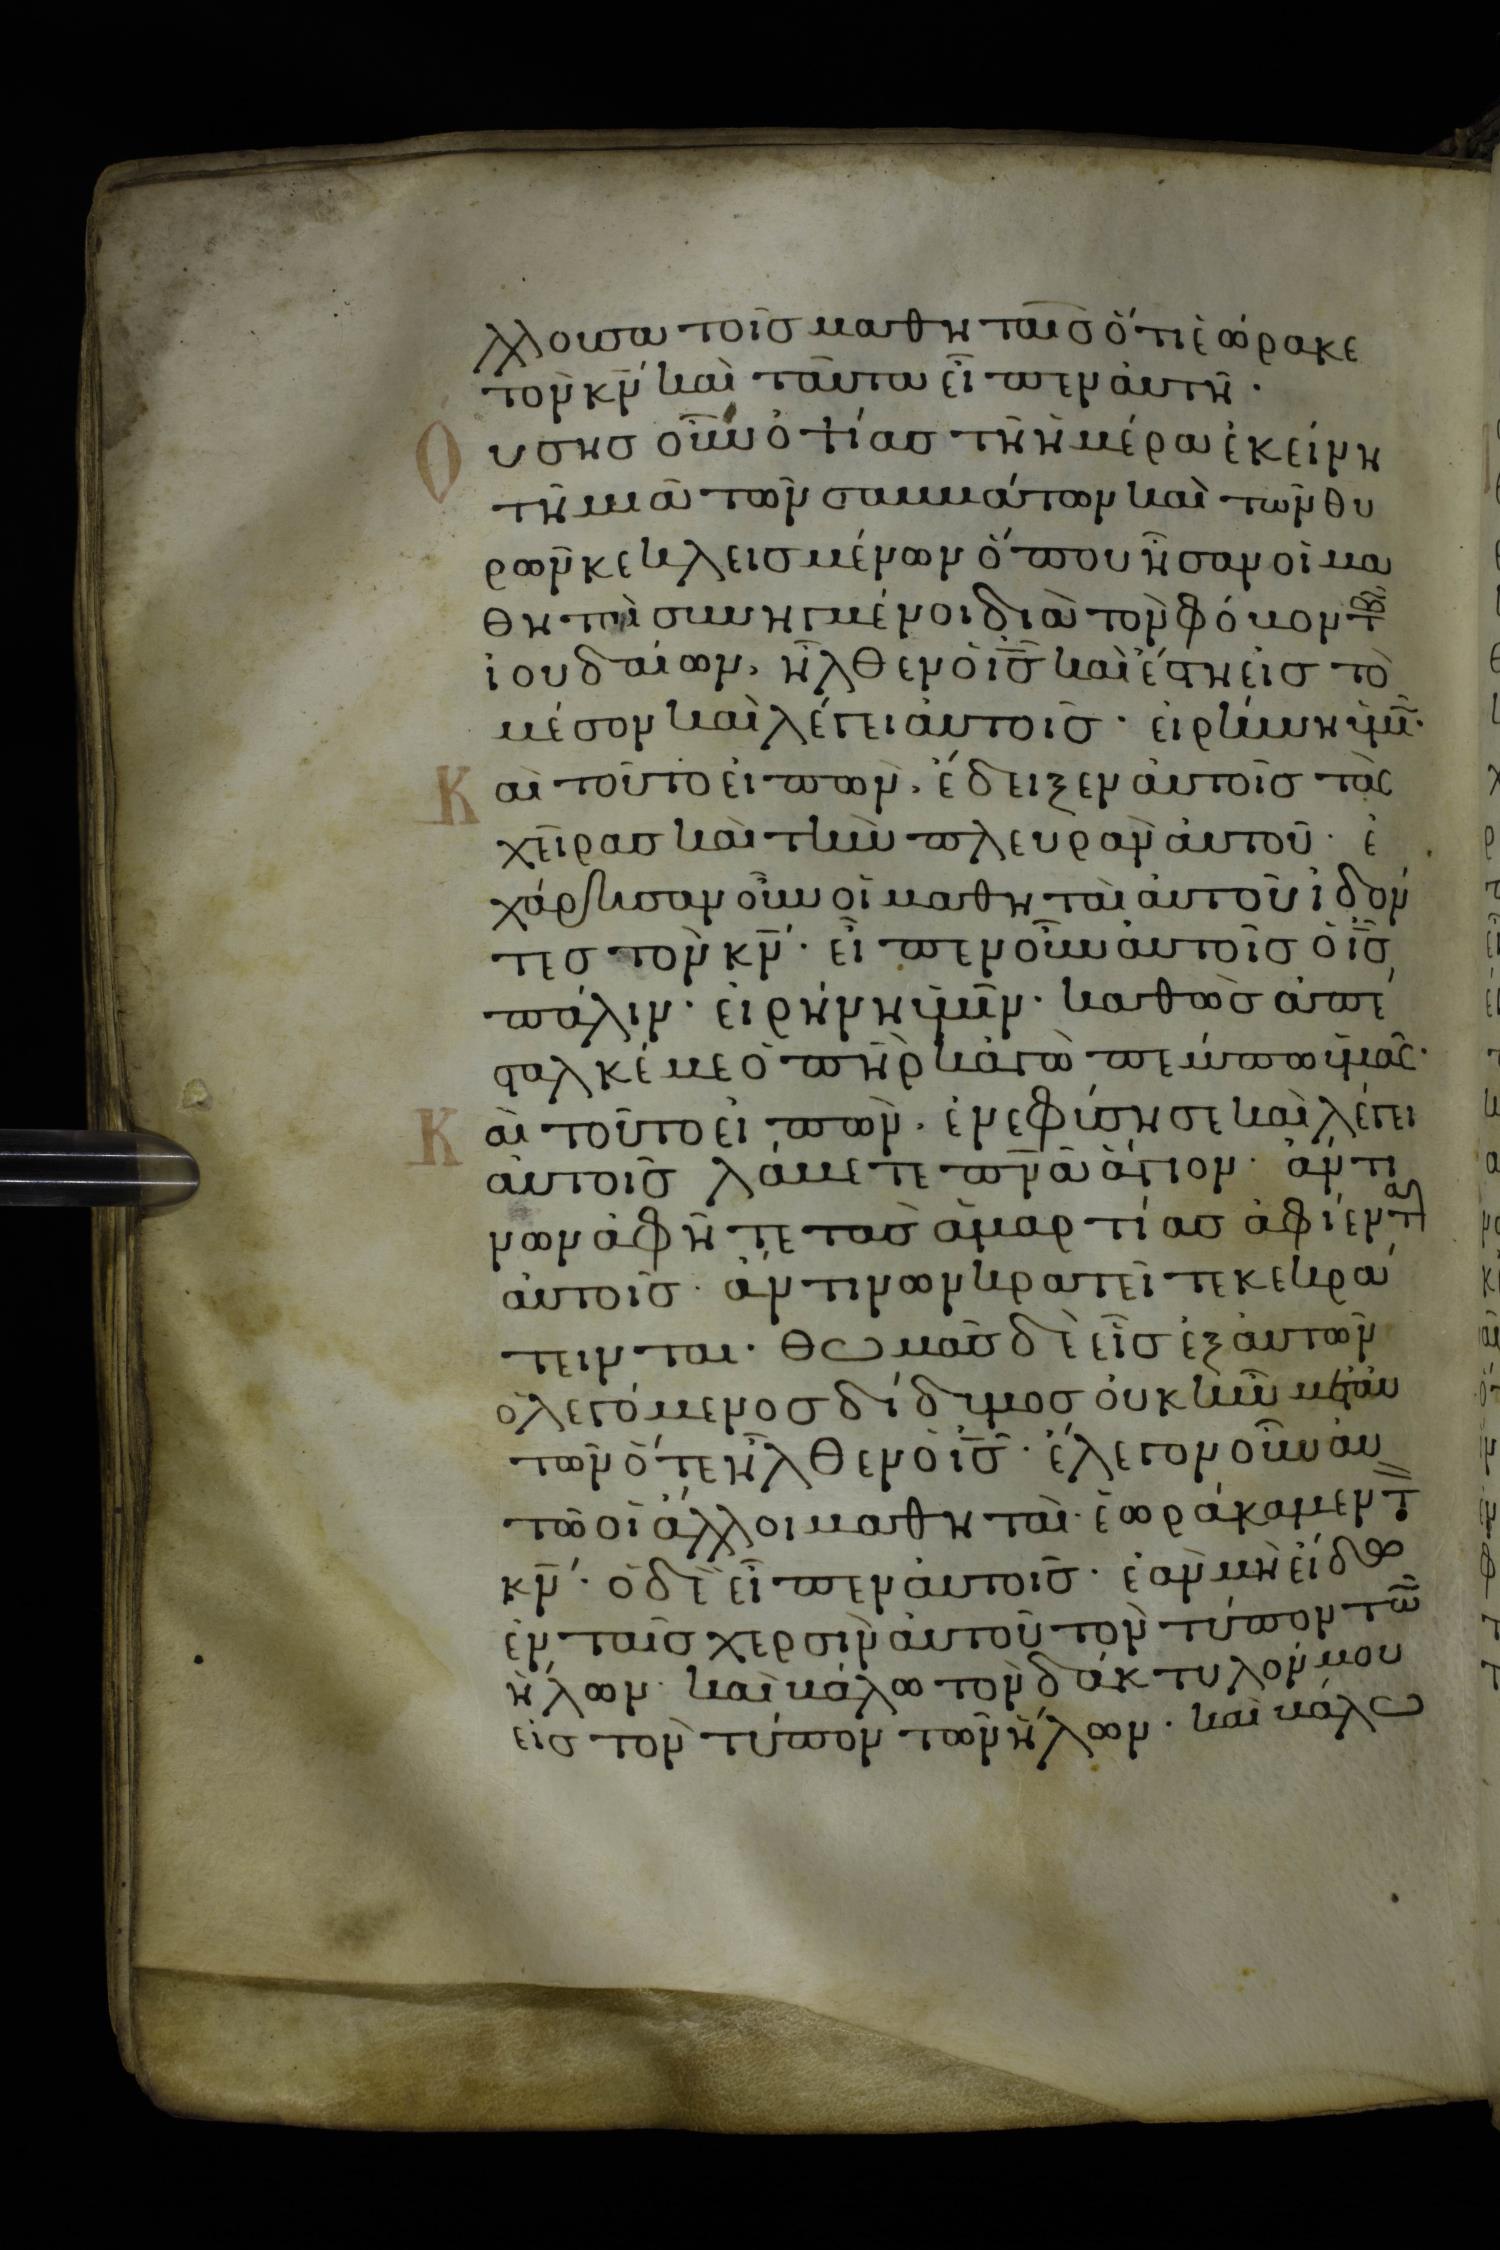 λλουσα τοῖς μαθηταῖς ὅτι ἑώρακε
τὸν κν̄ καὶ ταῦτα εἶπεν αὐτῆ·
Ουσης οὖν ὀψίας τῆ ἡμέρα ἐκείνη
τῆ μιᾶ τῶν σαββάτων καὶ τῶν θυ
ρῶν κεκλεισμένων ὅπου ἦσαν οἱ μα
θηταὶ συνηγμένοι διὰ τὸν φόβον τῶν
ἰουδαίων, ἦλθεν ὁ ις̄ καὶ ἔστη εἰς τὸ
μέσον καὶ λέγει αὐτοῖς· εἰρήνη ὑμῖν·
Και τοῦτο εἰπὼν, ἔδειξεν αὐτοῖς τὰς
χεῖρας καὶ τὴν πλευρὰν αὐτοῦ· ἐ
χάρησαν οὖν οἱ μαθηταὶ αὐτοῦ ἰδόν
τες τὸν κν̄· εἶπεν οὖν αὐτοῖς ὁ ις̄
πάλιν· εἰρήνη ὑμῖν· καθὼς ἀπέ
σταλκέ με ὁ πηρ κἀγὼ πέμπω ὑμᾶς·
Και τοῦτο εἰπὼν· ἐνεφύσησε καὶ λέγει
αὐτοῖς λάβετε πνᾱ ἅγιον· ἄν τι
νων ἀφῆτε τὰς ἁμαρτίας ἀφίενται
αὐτοῖς· ἄν τινων κρατεῖτε κεκρά
τεινται· θωμᾶς δὲ εἷς ἐξ αὐτῶν
ὁ λεγόμενος δίδυμος οὐκ ἦν μετ' αὐ
τῶν ὅτε ἦλθεν ὁ ις̄· ἔλεγον οὖν αὐ
τῶ οἱ ἄλλοι μαθηταὶ· ἑωράκαμεν τὸν
κν̄· ὁ δὲ εἶπεν αὐτοῖς· ἐὰν μὴ εἴδω
ἐν ταῖς χερσὶν αὐτοῦ τὸν τύπον τῶν
ἥλων· καὶ βάλω τὸν δάκτυλόν μου
εἰς τὸν τύπον τῶν ἥλων· καὶ βάλω